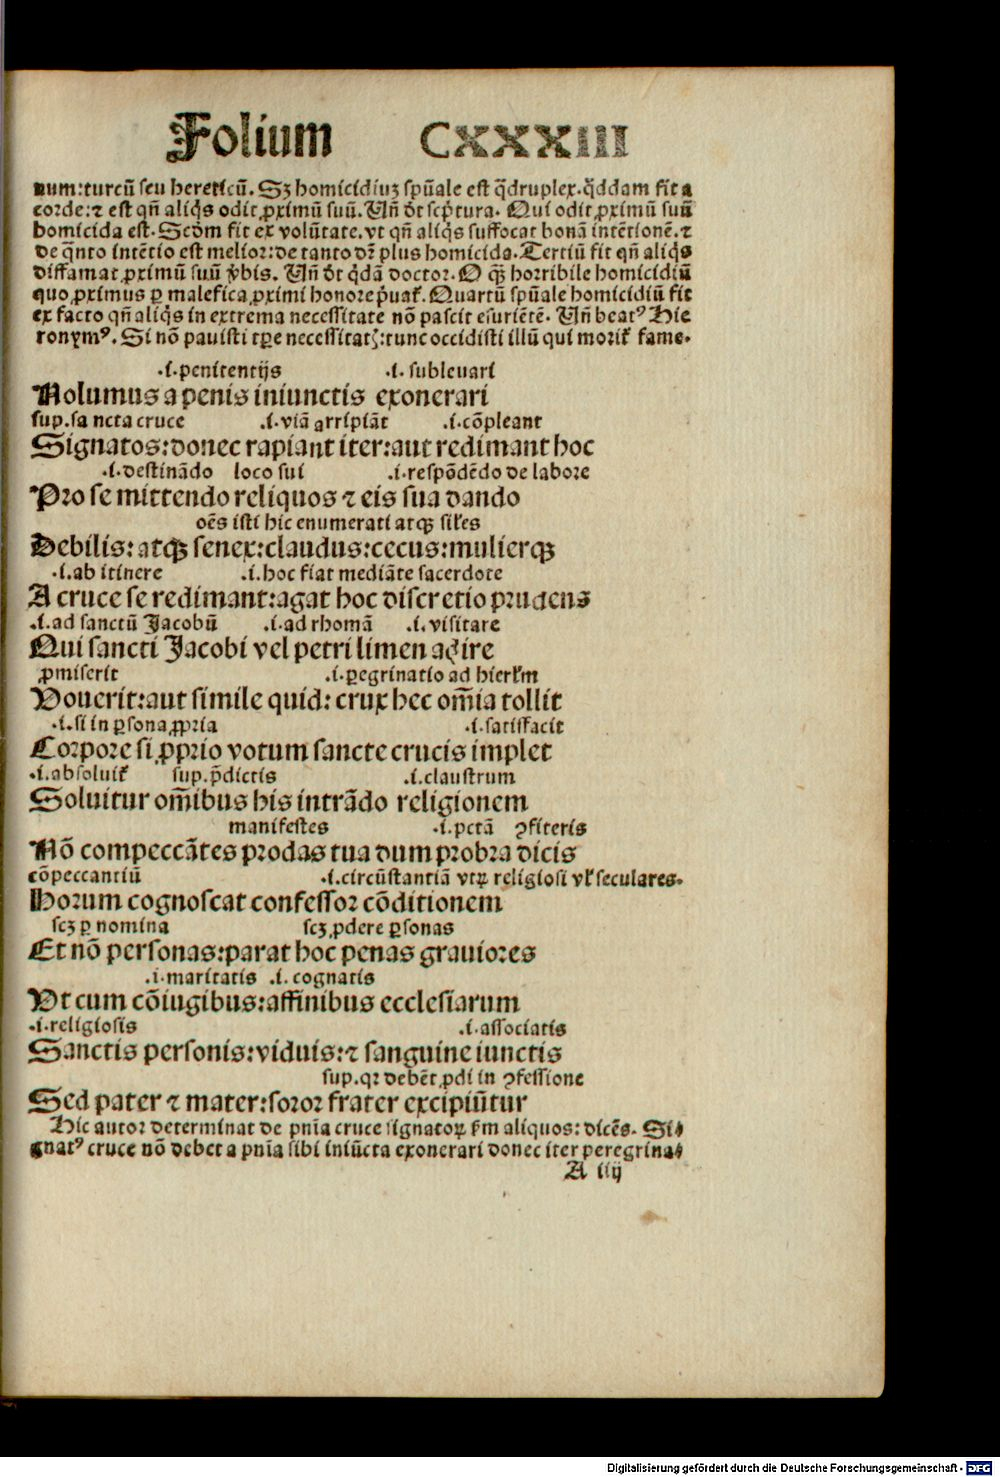 Folium CXXXIII
num:turcū seu hereticū. Sꝫ homicidiuꝫ spūale est q̄druplex. q̄ddam fit a
corde: ⁊ est qn̄ aliq̇s odit ꝓximū suū. Vn̄ dr̄ scp̄tura. Qui odit ꝓximū suū
homicida est. Scd̓m fit ex volūtate. vt qn̄ aliq̇s suffocat bonā intētionē. ⁊
de q̄nto intētio est melior: de tanto dr̄ plus homicida. Tertiū fit qn̄ aliq̇s
diffamat ꝓximū suū v̓bis. Vn̄ dr̄ q̇dā doctor. O qꝫ horribile homicidiū
quo ꝓximus ꝑ malefica ꝓximi honore p̓uat᷑. Quartū spūale homicidiū fit
ex facto qn̄ aliq̇s in extrema necessitate nō pascit esuriētē. Vn̄ beatꝰ Hie
ronymꝰ. Si nō pauisti tꝑe necessitatꝭ: tunc occidisti illū qui morit᷑ fame.
.i. penitentijs .i. subleuari
Nolumus a penis iniunctis exonerari
sup. sancta cruce .i. viā arripiāt .i. cōpleant
Signatos: donec rapiant iter: aut redimant hoc
.i. destinādo loco sui .i. respōdēdo de labore
Pro se mittendo reliquos ⁊ eis sua dando
oēs isti hic enumerati atqꝫ sil̓es
Debilis: atqꝫ senex: claudus: cecus: mulierqꝫ
.i. ab itinere .i. hoc fiat mediāte sacerdote
A cruce se redimant: agat hoc discretio prudens
.i. ad sanctū Jacobū .i. ad rhomā .i. visitare
Qui sancti Jacobi vel petri limen adire
ꝓmiserit .i. ꝑegrinatio ad hierl̓m
Vouerit: aut simile quid: crux hec om̄ia tollit
.i. si in ꝑsona ꝓpria .i. satisfacit
Corpore si ꝓprio votum sancte crucis implet
.i. absoluit᷑ sup. p̄dictis .i. claustrum
Soluitur om̄ibus his intrādo religionem
manifestes .i. pctā ꝯfiteris
Nō compeccātes prodas tua dum probra dicis
cōpeccantiū .i. circūstantiā vtꝝ religiosi vl̓ seculares.
Horum cognoscat confessor cōditionem
scꝫ ꝑ nomina scꝫ ꝓdere ꝑsonas
Et nō personas: parat hoc penas grauiores
.i. maritatis .i. cognatis
Vt cum cōiugibus: affinibus ecclesiarum
.i. religiosis .i. associatis
Sanctis personis: viduis: ⁊ sanguine iunctis
sup. qꝛ debēt ꝓdi in ꝯfessione
Sed pater ⁊ mater: soror frater excipiūtur
Hic autor determinat de pn̄ia cruce signatoꝝ s̓m aliquos: dicēs. Si⸗
gnatꝰ cruce nō debet a pn̄ia sibi iniūcta exonerari donec iter peregrina⸗
A iij
Digitalisierung gefördert durch die Deutsche Forschungsgemeinschaft - DFG